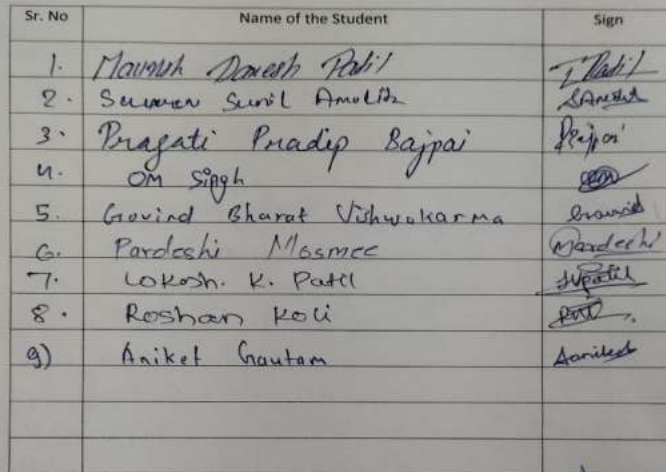 Sr. No Name of the Student Sign
1. Patil Patil
2. Sunil
3. Pragati Pradip Bajpai
4. OM Singh
5. Govind Bharat Vishwakarma Govind
6. Pardeshi Mosmee Pardeshi
7. Lokesh. K. Patil
8. Roshan Koli
9) Aniket Gautam